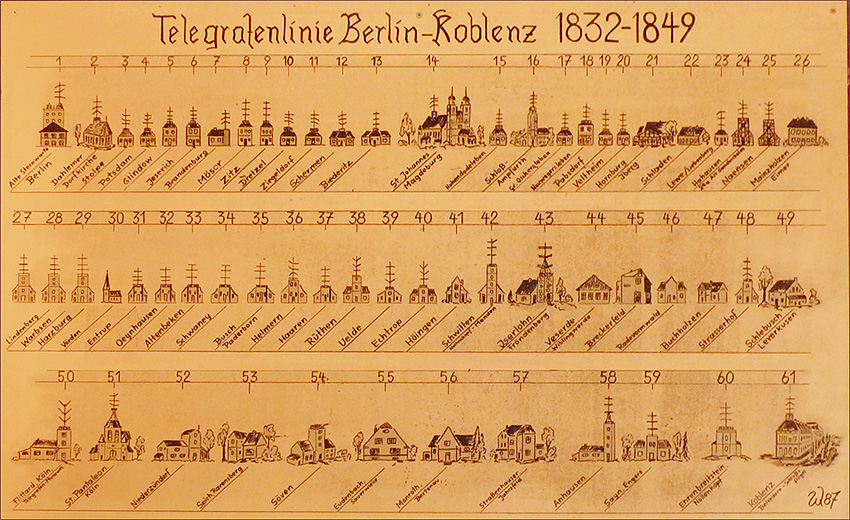 Telegrafenlinie Berlin-Koblenz 1832-1849
1 2 3 4 5 6 7 8 9 10 11 12 13 14 15 16 17 18 19 20 21 22 23 24 25 26
Alte Sternwarte Berlin
Dahlemer Dorfkirche
Stolpe
Potsdam
Glindow
Jeserich
Brandenburg
Mösor
Zitz
Dretzel
Ziegelsdorf
Schermen
Biederitz
St. Johannes Magdeburg
Hohendodeleben
Schloß Ampfurth
Gr. Quenstedt
Pabsdorf
Veltheim
Hornburg
Jberg
Schladen
Naensen
Mainzholzen
Eimer
27 28 29 30 31 32 33 34 35 36 37 38 39 40 41 42 43 44 45 46 47 48 49
Lindenberg
Warbsen
Harzburg
Entrup
Oeynhausen
Altenbeken
Schwaney
Busch Paderborn
Helmern
Haaren
Rüthen
Uelde
Echtrop
Höingen
Iserlohn Fröndenberg
Veserde
Breckerfeld
Radevormwald
Buchholzen
Strasserhof
Schlebusch Leverkusen
50 51 52 53 54 55 56 57 58 59 60 61
Flittard, Köln
St. Pantaleon Köln
Niederzündorf
Spich
Söven
Eudenbach
Straßenhausen
Anhausen
Sayn, Engers
Ehrenbreitstein
Koblenz
W.87